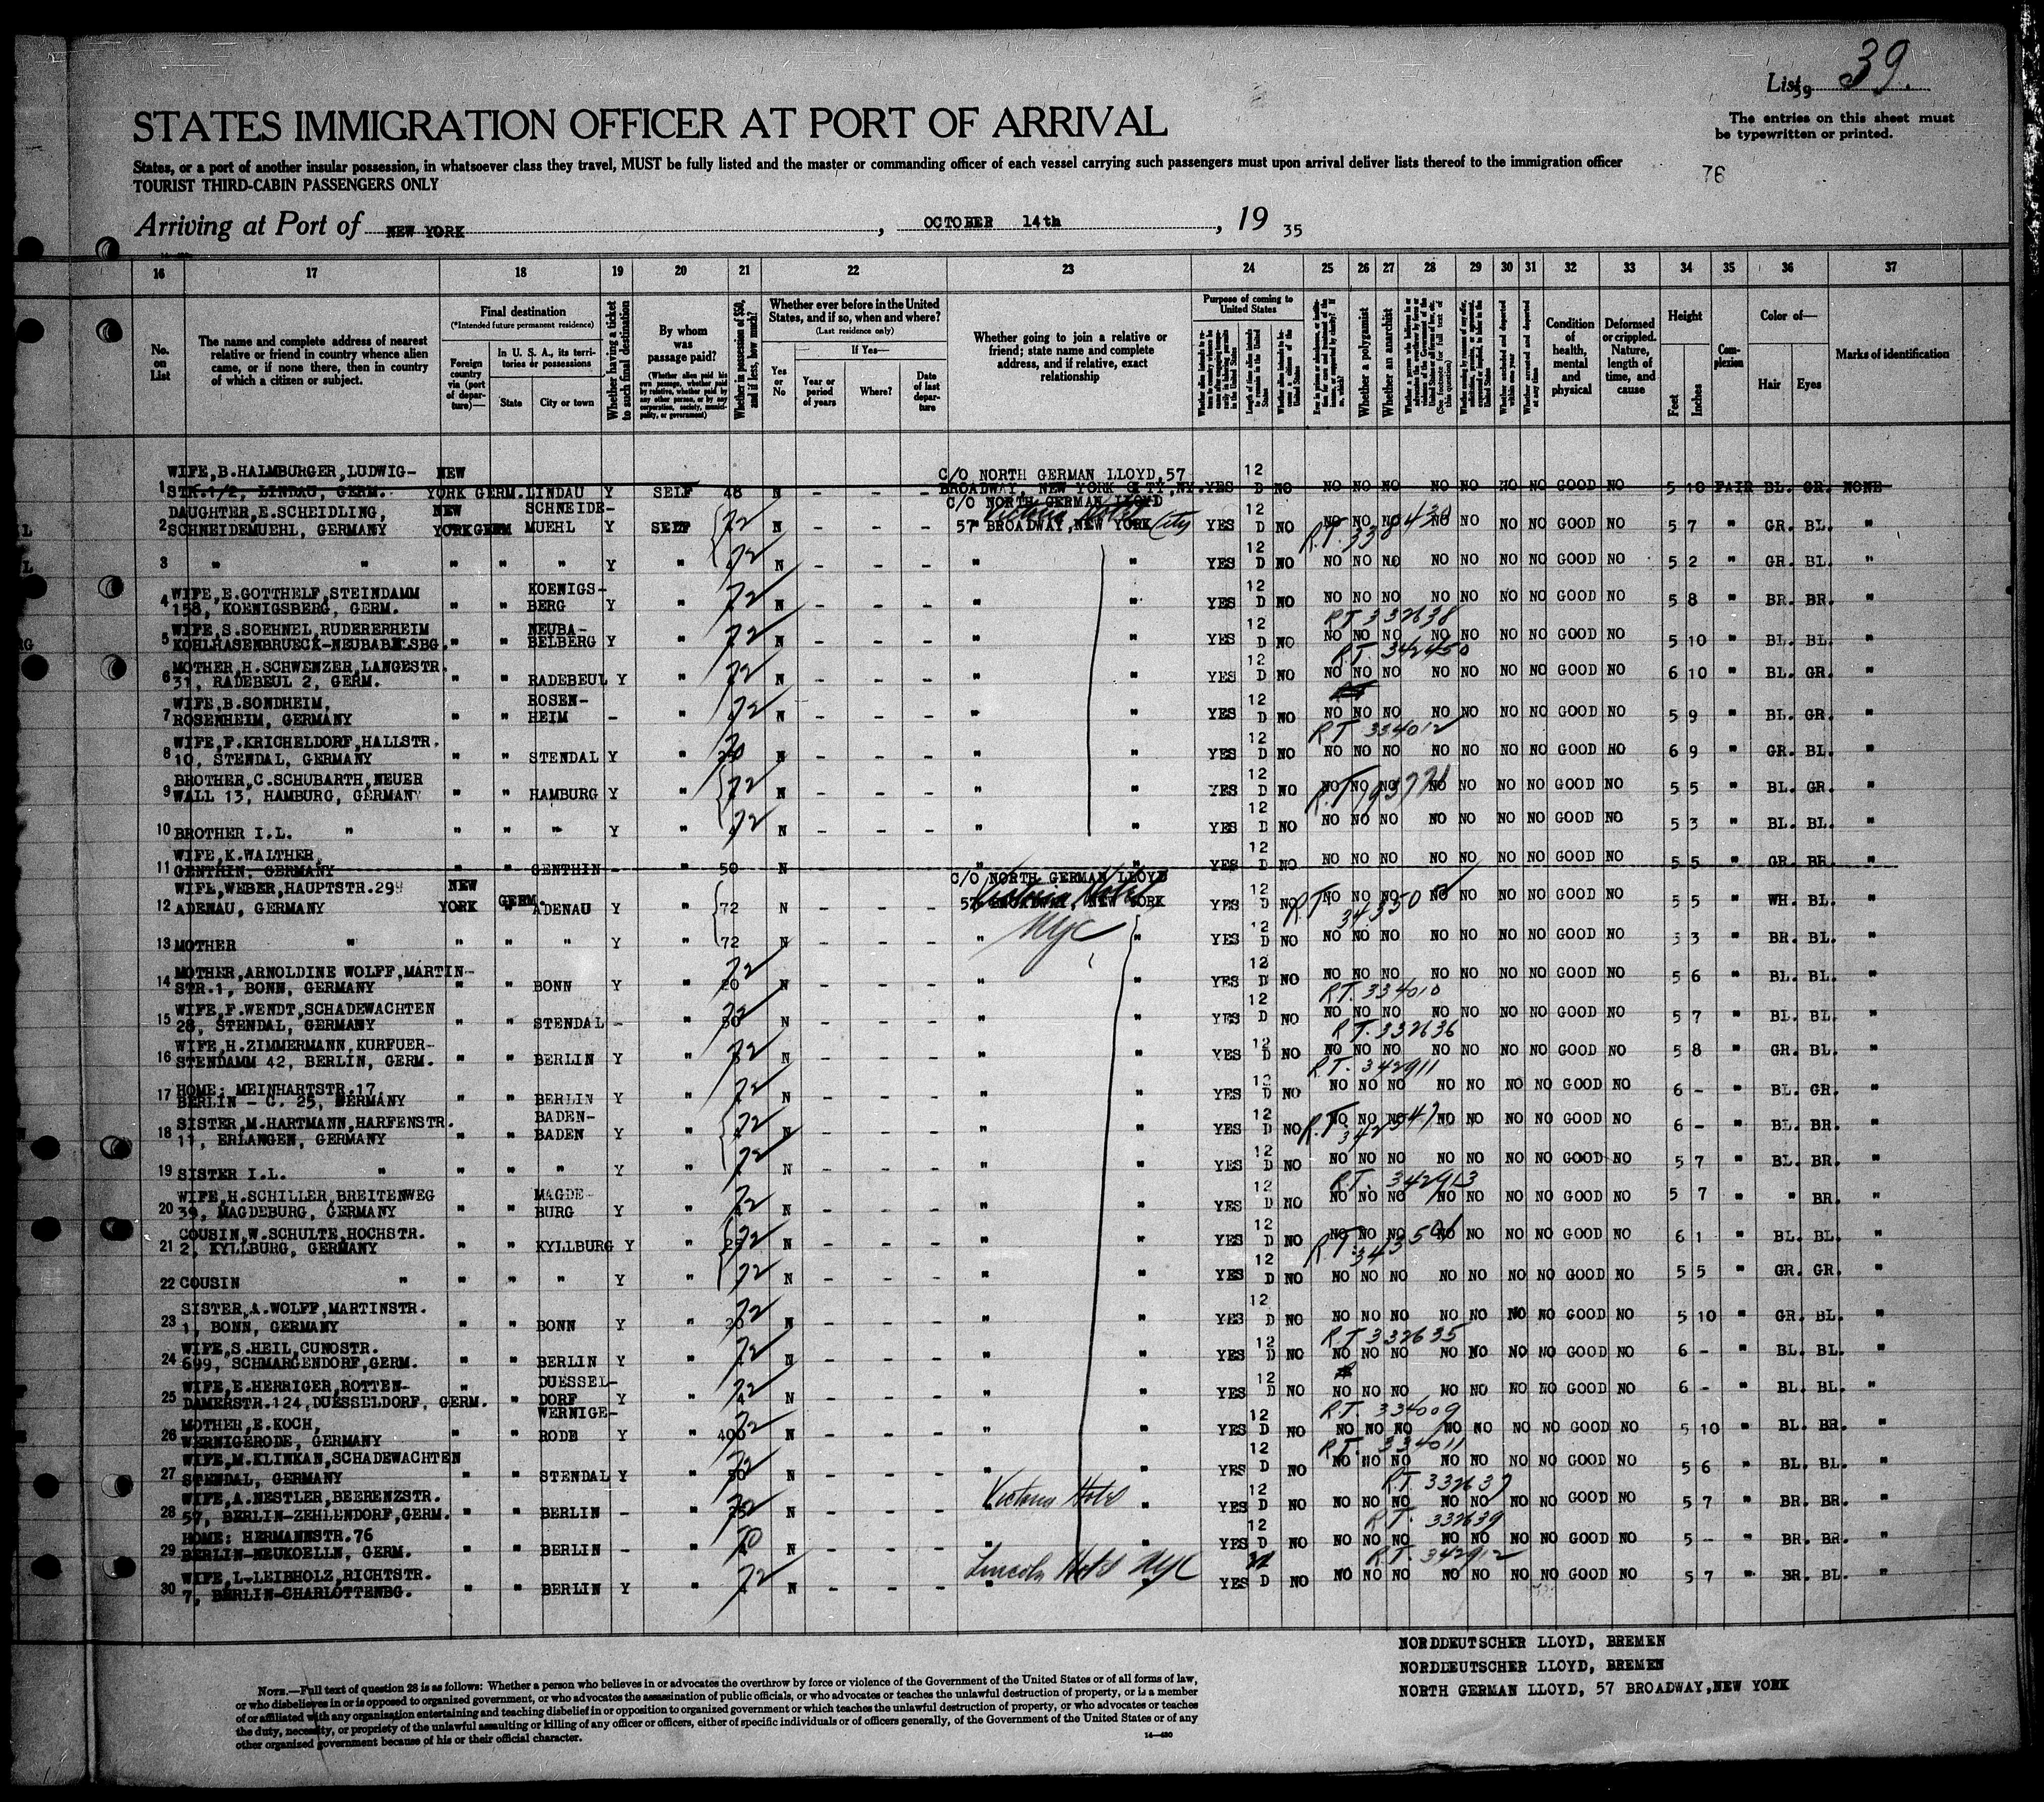 List 39 39.
The entries on this sheet must
be typewritten or printed.
STATES IMMIGRATION OFFICER AT PORT OF ARRIVAL
States, or a port of another insular possession, in whatsoever class they travel, MUST be fully listed and the master or commanding officer of each vessel carrying such passengers must upon arrival deliver lists thereof to the immigration officer
TOURIST THIRD-CABIN PASSENGERS ONLY
76
Arriving at Port of NEW YORK, OCTOBER 14th, 19 35
16 17 18 19 20 21 22 23 24 25 26 27 28 29 30 31 32 33 34 35 36 37
No. on List
The name and complete address of nearest relative or friend in country whence alien came, or if none there, then in country of which a citizen or subject.
Final destination
(*Intended future permanent residence)
Foreign country via (port of departure)—
In U. S. A., its territories or possessions
State
City or town
Whether having a ticket to such final destination
By whom was passage paid?
(Whether alien paid his own passage, whether paid by relative, whether paid by any other person, or by any corporation, society, municipality, or government)
Whether in possession of $50, and if less, how much?
Whether ever before in the United States, and if so, when and where?
(Last residence only)
Yes or No
If Yes—
Year or period of years
Where?
Date of last departure
Whether going to join a relative or friend; state name and complete address, and if relative, exact relationship
Purpose of coming to United States
Whether a polygamist
Whether an anarchist
Condition of health, mental and physical
Deformed or crippled. Nature, length of time, and cause
Height
Feet
Inches
Complexion
Color of—
Hair
Eyes
Marks of identification
WIFE,B.HALMBURGER,LUDWIG- NEW C/O NORTH GERMAN LLOYD,57 12
1 STR.1/2, LINDAU, GERM. YORK GERM. LINDAU Y SELF 48 N - - - BROADWAY, NEW YORK CITY,NY. YES D NO NO NO NO NO NO NO NO GOOD NO 5 10 FAIR BL. GR. NONE
DAUGHTER,E.SCHEIDLING, NEW SCHNEIDE- C/O NORTH GERMAN LLOYD Victoria Hotel 12
2 SCHNEIDEMUEHL, GERMANY YORK GERM MUEHL Y SELF 72 N - - - 57 BROADWAY,NEW YORK City YES D NO NO NO NO NO NO NO NO GOOD NO 5 7 " GR. BL. "
3 " " " " " Y " 72 N - - - " " YES 12 D NO NO NO NO NO NO NO NO GOOD NO 5 2 " GR. BL. "
WIFE,E.GOTTHELF,STEINDAMM KOENIGS-
4 158, KOENIGSBERG, GERM. " " BERG Y " 72 N - - - " " YES 12 D NO NO NO NO NO NO NO NO GOOD NO 5 8 " BR. BR. "
WIFE,S.SOEHNEL,RUDERERHEIM NEUBA- R.T. 332638
5 KOHLHASENBRUECK-NEUBABELSBG. " " BELBERG Y " 72 N - - - " " YES 12 D NO NO NO NO NO NO NO NO GOOD NO 5 10 " BL. BL. "
MOTHER,H.SCHWENZER,LANGESTR. R.T. 342450
6 31, RADEBEUL 2, GERM. " " RADEBEUL Y " 72 N - - - " " YES 12 D NO NO NO NO NO NO NO NO GOOD NO 6 10 " BL. GR. "
WIFE,B.SONDHEIM, ROSEN-
7 ROSENHEIM, GERMANY " " HEIM - " 72 N - - - " " YES 12 D NO NO NO NO NO NO NO NO GOOD NO 5 9 " BL. GR. "
WIFE,F.KRICHELDORF,HALLSTR. R.T. 334012
8 10, STENDAL, GERMANY " " STENDAL Y " N - - - " " YES 12 D NO NO NO NO NO NO NO NO GOOD NO 6 9 " GR. BL. "
BROTHER,C.SCHUBARTH,NEUER
9 WALL 13, HAMBURG, GERMANY " " HAMBURG Y " 72 N - - - " " YES 12 D NO NO NO NO NO NO NO NO GOOD NO 5 5 " BL. GR. "
10 BROTHER I.L. " " " " Y " 72 N - - - " " YES 12 D NO NO NO NO NO NO NO NO GOOD NO 5 3 " BL. BL. "
WIFE,K.WALTHER,
11 GENTHIN, GERMANY " " GENTHIN - " 50 N - - - " " YES 12 D NO NO NO NO NO NO NO NO GOOD NO 5 5 " GR. BR. "
WIFE,WEBER,HAUPTSTR.299 NEW GERM. C/O NORTH GERMAN LLOYD Victoria Hotel
12 ADENAU, GERMANY YORK " ADENAU Y " 72 N - - - 57 BROADWAY, NEW YORK YES 12 D NO NO NO NO NO NO NO NO GOOD NO 5 5 " WH. BL. "
13 MOTHER " " " " Y " 72 N - - - " NYC " YES 12 D NO NO NO NO NO NO NO NO GOOD NO 5 3 " BR. BL. "
MOTHER,ARNOLDINE WOLFF,MARTIN-
14 STR.1, BONN, GERMANY " " BONN Y " 72 20 N - - - " " YES 12 D NO NO NO NO NO NO NO NO GOOD NO 5 6 " BL. BL. "
WIFE,F.WENDT,SCHADEWACHTEN R.T. 334010
15 28, STENDAL, GERMANY " " STENDAL - " 72 50 N - - - " " YES 12 D NO NO NO NO NO NO NO NO GOOD NO 5 7 " BL. BL. "
WIFE,H.ZIMMERMANN,KURFUER- R.T. 332636
16 STENDAMM 42, BERLIN, GERM. " " BERLIN Y " 72 N - - - " " YES 12 D NO NO NO NO NO NO NO NO GOOD NO 5 8 " GR. BL. "
HOME: MEINHARTSTR.17, R.T. 342911
17 BERLIN - C. 25, GERMANY " " BERLIN Y " 72 N - - - " " YES 12 D NO NO NO NO NO NO NO NO GOOD NO 6 - " BL. GR. "
SISTER,M.HARTMANN,HARFENSTR. BADEN-
18 11, ERLANGEN, GERMANY " " BADEN Y " 72 N - - - " " YES 12 D NO NO NO NO NO NO NO NO GOOD NO 6 - " BL. BR. "
19 SISTER I.L. " " " " Y " 72 N - - - " " YES 12 D NO NO NO NO NO NO NO NO GOOD NO 5 7 " BL. BR. "
WIFE,H.SCHILLER,BREITENWEG MAGDE- R.T. 342913
20 39, MAGDEBURG, GERMANY " " BURG Y " 72 N - - - " " YES 12 D NO NO NO NO NO NO NO NO GOOD NO 5 7 " " BR. "
COUSIN,W.SCHULTE,HOCHSTR.
21 2, KYLLBURG, GERMANY " " KYLLBURG Y " 72 N - - - " " YES 12 D NO NO NO NO NO NO NO NO GOOD NO 6 1 " BL. BL. "
22 COUSIN " " " " Y " 72 N - - - " " YES 12 D NO NO NO NO NO NO NO NO GOOD NO 5 5 " GR. GR. "
SISTER,A.WOLFF,MARTINSTR.
23 1, BONN, GERMANY " " BONN Y " 72 20 N - - - " " YES 12 D NO NO NO NO NO NO NO NO GOOD NO 5 10 " GR. BL. "
WIFE,S.HEIL,CUNOSTR. R.T. 332635
24 699, SCHMARGENDORF,GERM. " " BERLIN Y " 72 N - - - " " YES 12 D NO NO NO NO NO NO NO NO GOOD NO 6 - " BL. BL. "
WIFE,E.HERRIGER,ROTTEN- " DUESSEL-
25 DAMERSTR.124,DUESSELDORF, GERM. " DORF Y " 72 N - - - " " YES 12 D NO NO NO NO NO NO NO NO GOOD NO 6 - " BL. BL. "
MOTHER,E.KOCH, WERNIGE- R.T. 334009
26 WERNIGERODE, GERMANY " " RODE Y " 72 400 N - - - " " YES 12 D NO NO NO NO NO NO NO NO GOOD NO 5 10 " BL. BR. "
WIFE,M.KLINKAN,SCHADEWACHTEN R.T. 334011
27 STENDAL, GERMANY " " STENDAL Y " 72 50 N - - - " " YES 12 D NO NO NO NO NO NO NO NO GOOD NO 5 6 " BL. BL. "
WIFE,A.NESTLER,BEERENZSTR. Victoria Hotel R.T. 332637
28 57, BERLIN-ZEHLENDORF,GERM. " " BERLIN - " 72 N - - - " YES 12 D NO NO NO NO NO NO NO NO GOOD NO 5 7 " BR. BR. "
HOME: HERMANNSTR.76 R.T. 332639
29 BERLIN-NEUKOELLN, GERM. " " BERLIN - " N - - - " " YES 12 D NO NO NO NO NO NO NO NO GOOD NO 5 - " BR. BR. "
WIFE,L-LEIBHOLZ,RICHTSTR. Lincoln Hotel NYC R.T. 342912
30 7, BERLIN-CHARLOTTENBG. " " BERLIN Y " 72 N - - - " YES D NO NO NO NO NO NO NO NO GOOD NO 5 7 " BR. BL. "
NORDDEUTSCHER LLOYD, BREMEN
NORDDEUTSCHER LLOYD, BREMEN
NORTH GERMAN LLOYD, 57 BROADWAY,NEW YORK
NOTE.—Full text of question 28 is as follows: Whether a person who believes in or advocates the overthrow by force or violence of the Government of the United States or of all forms of law,
or who disbelieves in or is opposed to organized government, or who advocates the assassination of public officials, or who advocates or teaches the unlawful destruction of property, or is a member
of or affiliated with any organization entertaining and teaching disbelief in or opposition to organized government or which teaches the unlawful destruction of property, or who advocates or teaches
the duty, necessity, or propriety of the unlawful assaulting or killing of any officer or officers, either of specific individuals or of officers generally, of the Government of the United States or of any
other organized government because of his or their official character.
14—430